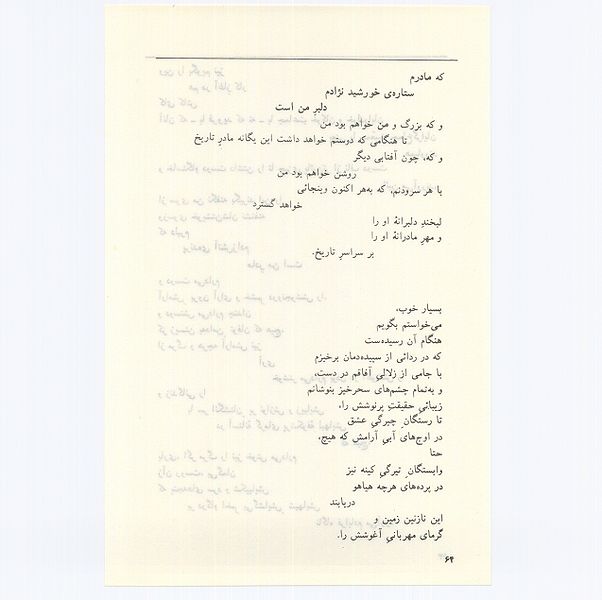 که مادرم
ستاره‌ی خورشید نژادم
دلبرِ من است
و که بزرگ و من خواهم بود من
تا هنگامی که دوستم خواهد داشت این یگانه مادرِ تاریخ
و که، چون آفتابی دیگر
روشن خواهم بود من
با هر سرودنم، که به‌هر اکنون وینجائی
خواهد گسترد
لبخندِ دلبرانهٔ او را
و مهرِ مادرانهٔ او را
بر سراسرِ تاریخ.
بسیار خوب،
می‌خواستم بگویم
هنگام آن رسیده‌ست
که در ردائی از سپیده‌دمان برخیزم
با جامی از زلالیِ آفاقم در دست،
و به‌تمام چشم‌های سحرخیز بنوشانم
زیبائیِ حقیقتِ پرنوشش را،
تا رستگانِ چیرگیِ عشق
در اوج‌های آبیِ آرامش که هیچ،
حتا
وابستگانِ تیرگیِ کینه نیز
در پرده‌های هرچه هیاهو
دریابند
این نازنین زمین و
گرمای مهربانیِ آغوشش را.
۶۴